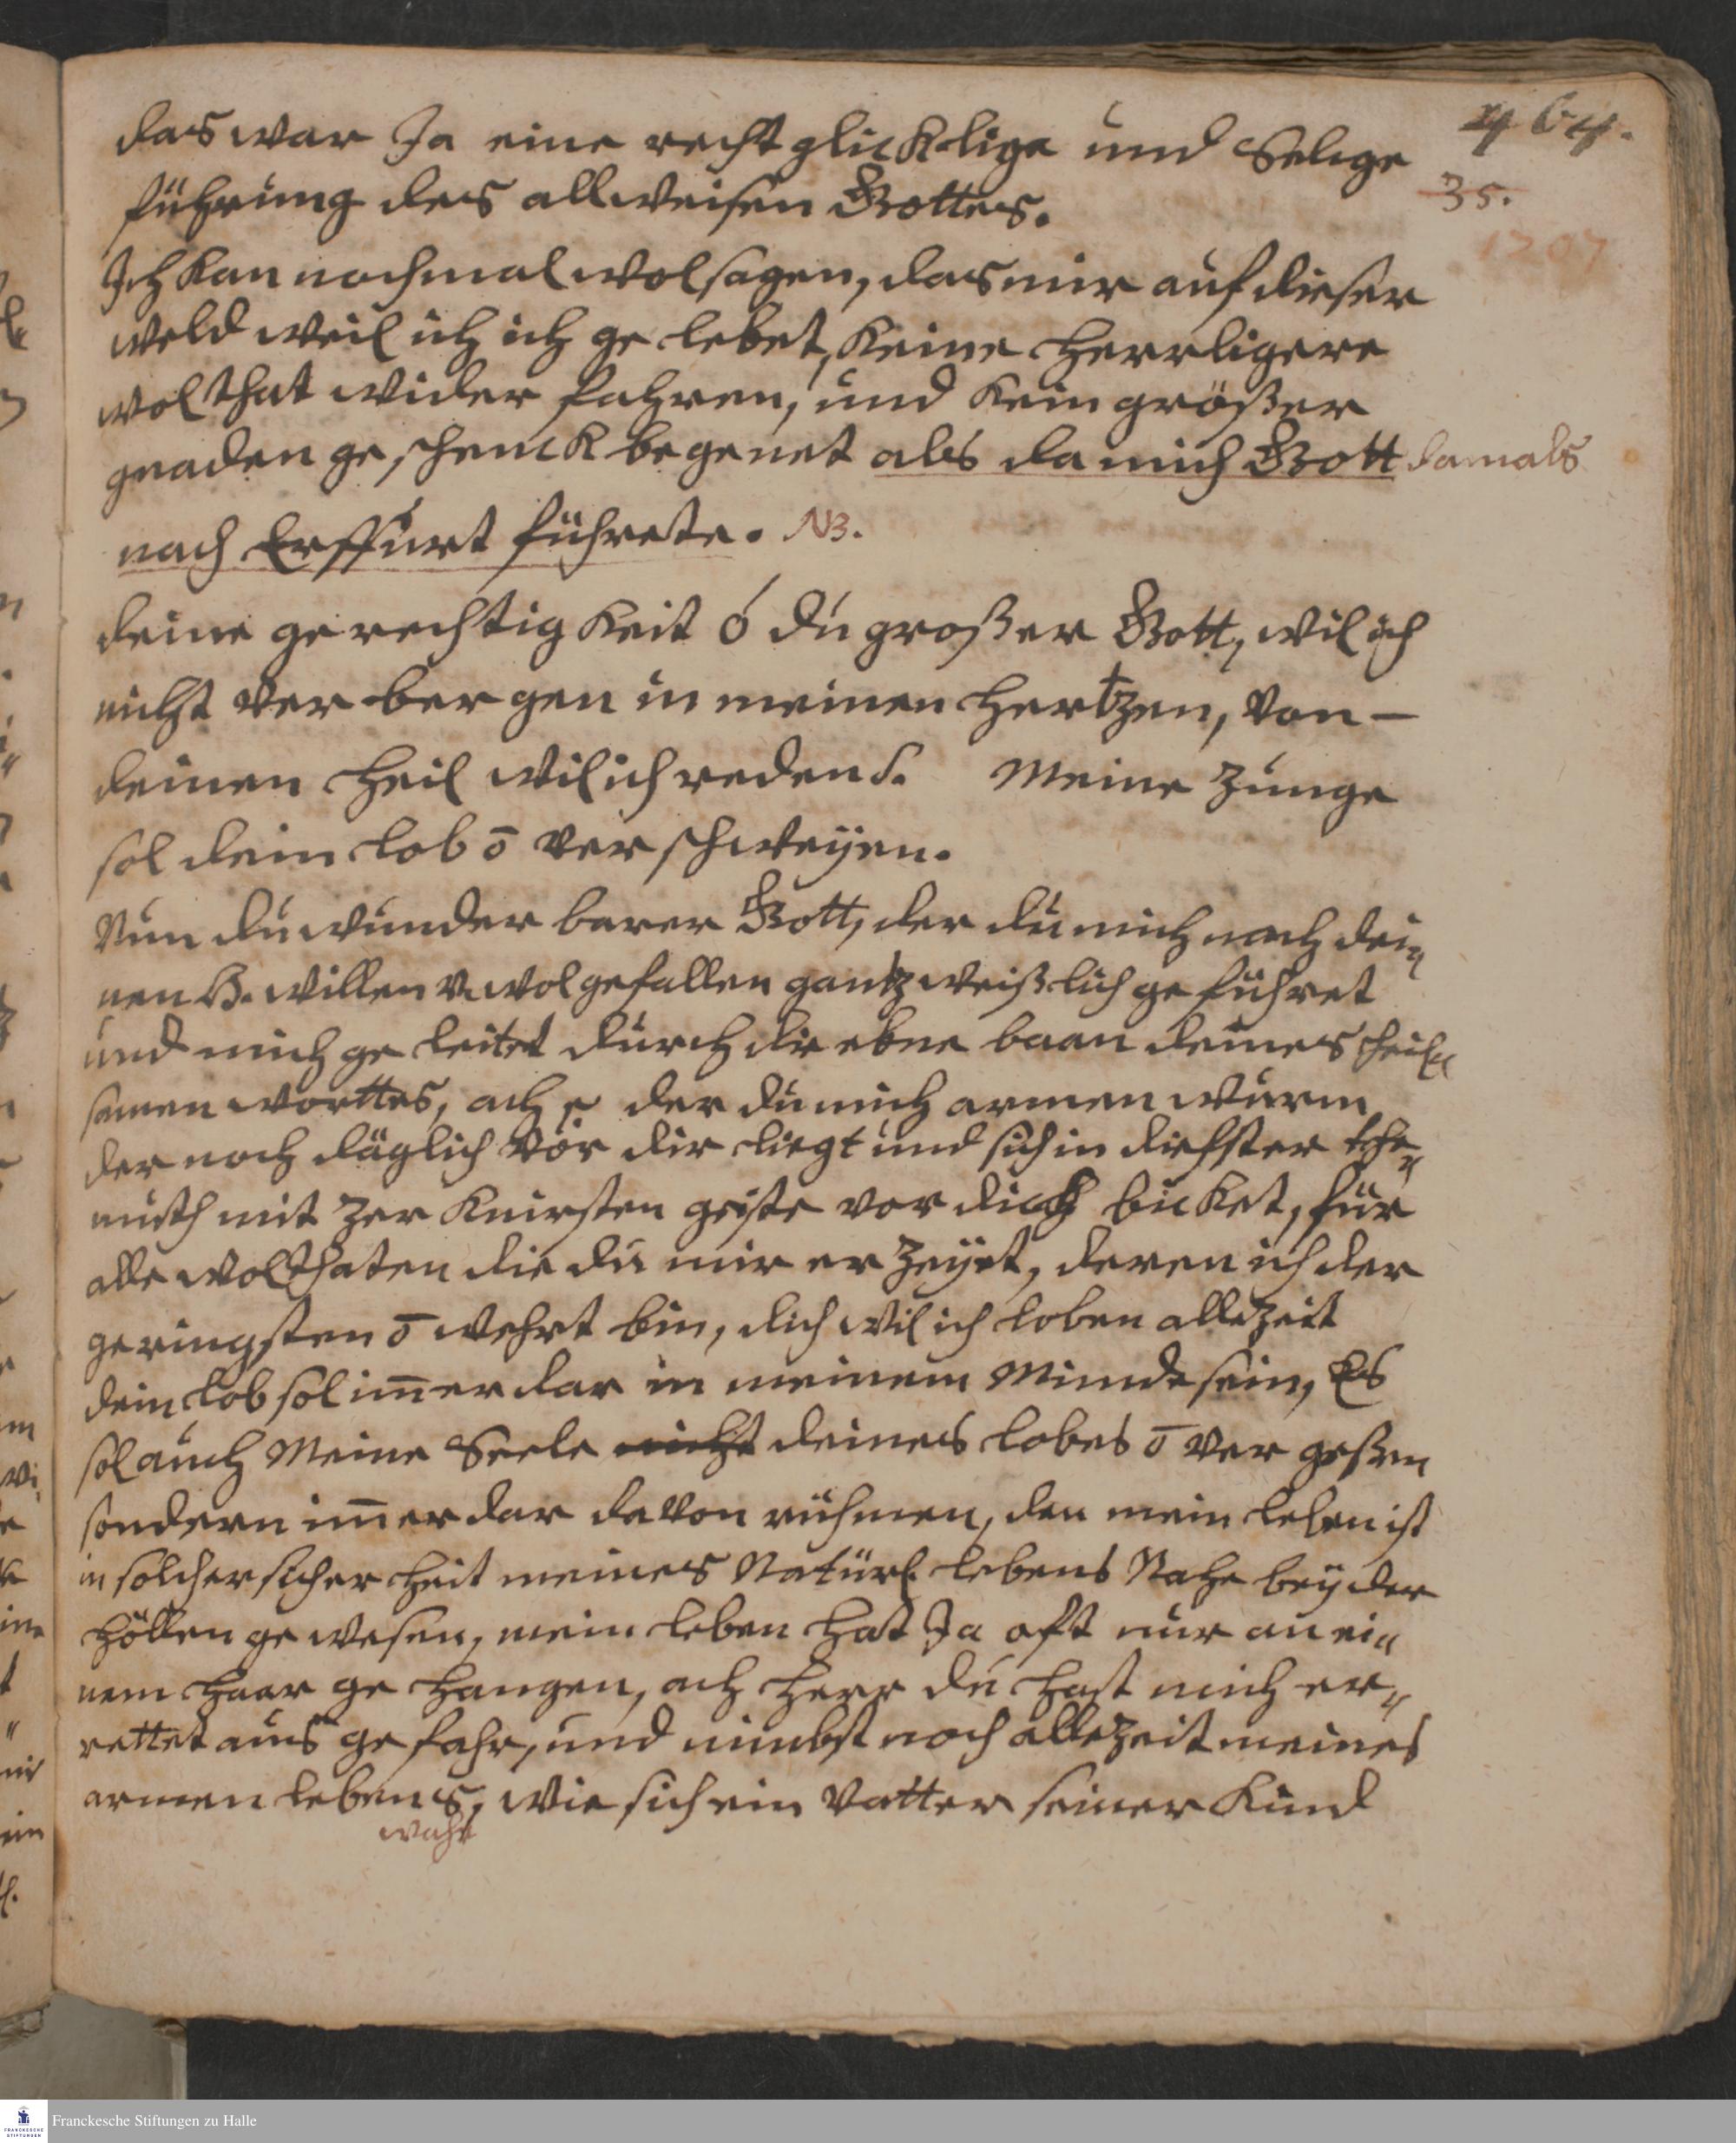 464.
35.
1207
das war Ja eine recht glicklige und Selige
führung des allweisen Gottes.
Ich kan nochmal wol sagen, das mir auf dieser
weld weil ich ich ge lebet, keine herrligere
wolthat wider fahren, und kein größer
gnaden geschenck begenet als da mich Gott damals
nach Erffurt führete. NB.
deine gerechtigkeit ó dú großer Gott, wil ich
nicht ver bergen in meinen hertzen, von –
deinen heil wil ich reden S. Meine Zunge
sol dein lob ō ver schweÿen.
Nun du wunder barer Gott, der du mich nach dei„
nen H. willen v. wolgefallen gantz weißlich ge führet
und mich ge leitet durch die ebne baan deines heil„
samen worttes, ach der du mich armen wurm
der noch däglich vör dir liegt und sich in diefster
muth mit zer knirsten geiste vor dich bicket, für
alle wolthaten die du mir er zeÿet, deren ich der
geringsten ō wehrt bin, dich wil ich loben allezeit
dein lob sol im̄er dar in meinem Munde sein, Es
sol auch Meine Seele nicht deines lobes ō ver geßen
sondern im̄er dar davon rühmen, den mein leben ist
in solcher sicher heit meines Natürl. lebens Nahe beÿ der
höllen ge wesen, mein leben hat Ja oft nur an ei„
nem haar ge hangen, ach herr du hast mich er„
rettet aus ge fahr, und nimbst noch allezeit meines
armen lebens, wie sich ein Vatter seiner Kind
wahr
Franckesche Stiftungen zu Halle